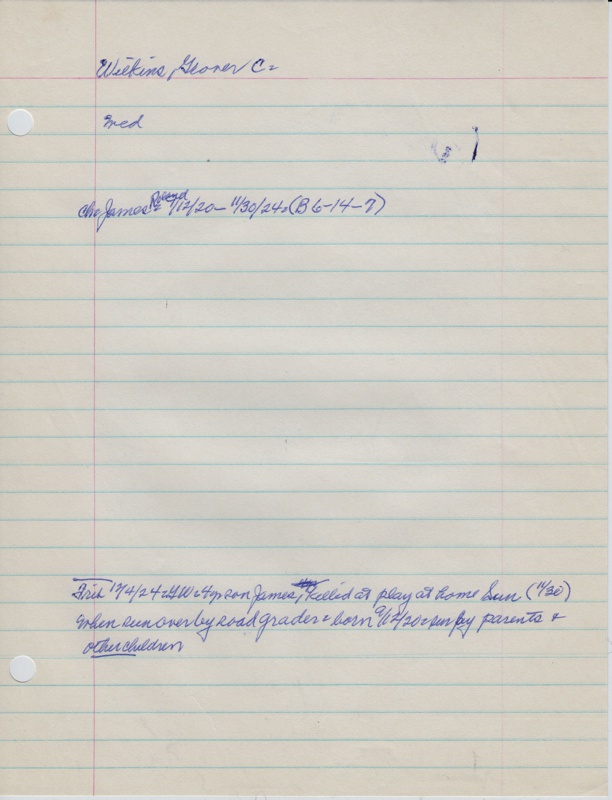 Wilkins, Glover C.
med
chr James Roland 9/12/20 – 11/30/24. (B 6-14-7)
Frid 12/4/24. GW. 4 yr son James, killed at play at home Sun (11/30)
when run over by road grader. born 9/12/20. sur by parents &
other children